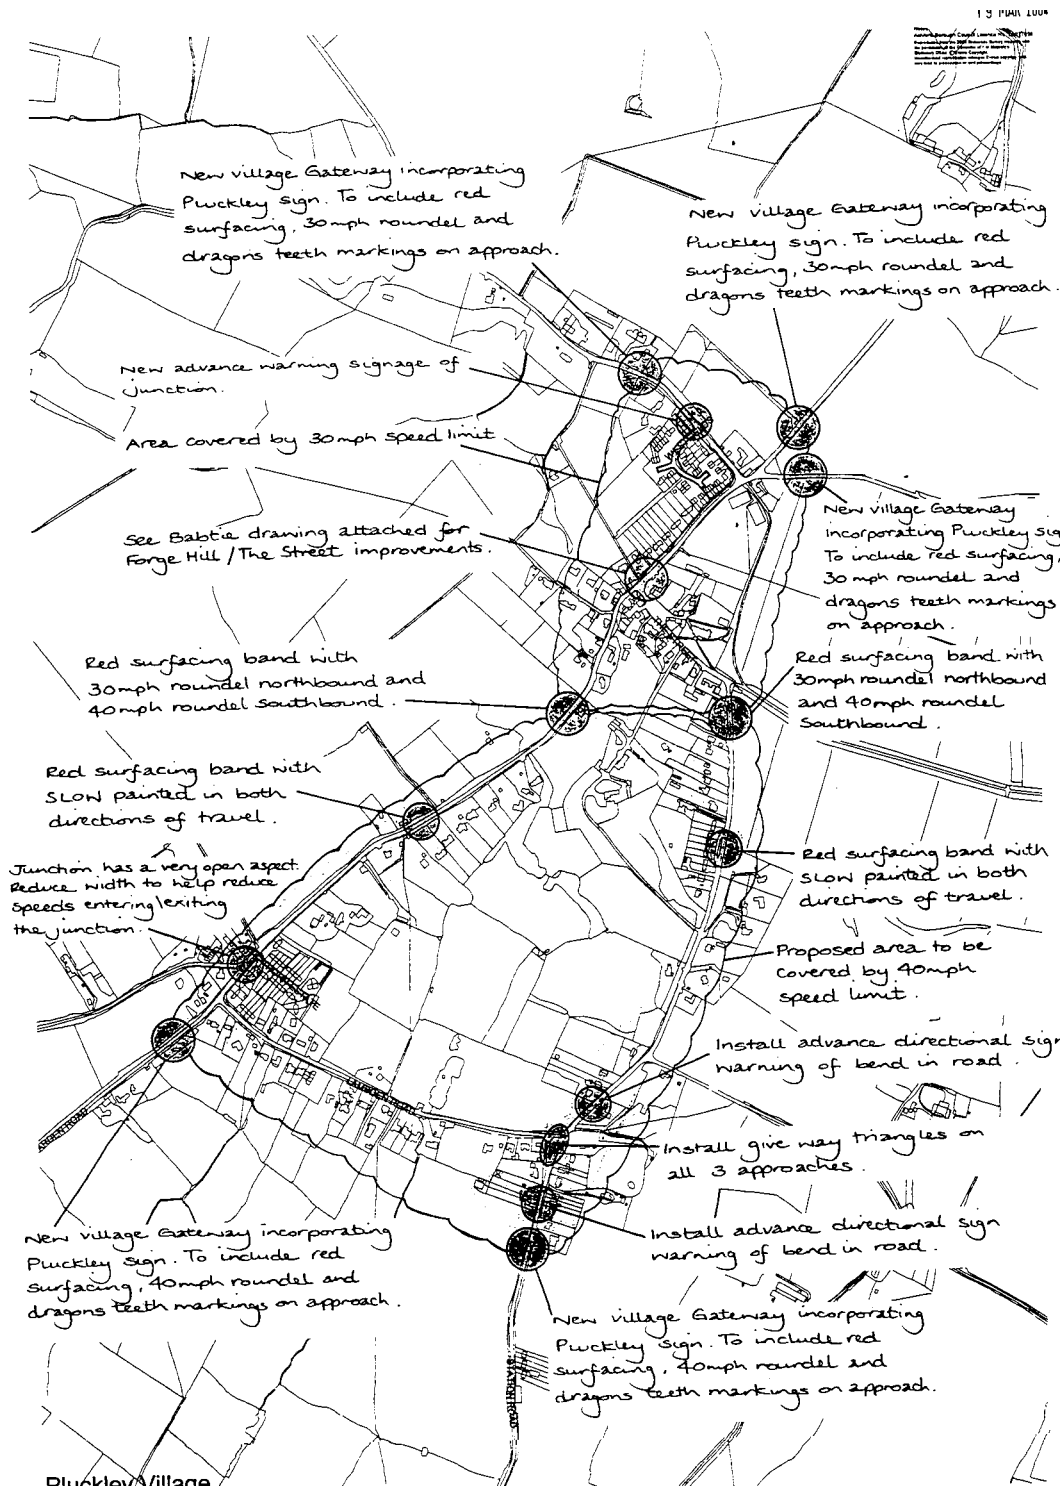 New village Gateway incorporating
Pluckley sign. To include red
surfacing, 30mph roundel and
dragons teeth markings on approach.
New village Gateway incorporating
Pluckley sign. To include red
surfacing, 30mph roundel and
dragons teeth markings on approach.
New advance warning signage of
junction.
Area covered by 30mph speed limit
New village Gateway
incorporating Pluckley sig
To include red surfacing,
30 mph roundel and
dragons teeth markings
on approach.
See Babtie drawing attached for
Forge Hill / The Street improvements.
Red surfacing band with
30mph roundel northbound and
40mph roundel southbound.
Red surfacing band with
30mph roundel northbound
and 40mph roundel
southbound.
Red surfacing band with
SLOW painted in both
directions of travel.
Junction has a very open aspect.
Reduce width to help reduce
speeds entering/exiting
the junction.
Red surfacing band with
SLOW painted in both
directions of travel.
Proposed area to be
covered by 40mph
speed limit.
Install advance directional sign
warning of bend in road.
Install give way triangles on
all 3 approaches.
Install advance directional sign
warning of bend in road.
New village Gateway incorporating
Pluckley sign. To include red
surfacing, 40mph roundel and
dragons teeth markings on approach.
New village Gateway incorporating
Pluckley sign. To include red
surfacing, 40mph roundel and
dragons teeth markings on approach.
Pluckley Village